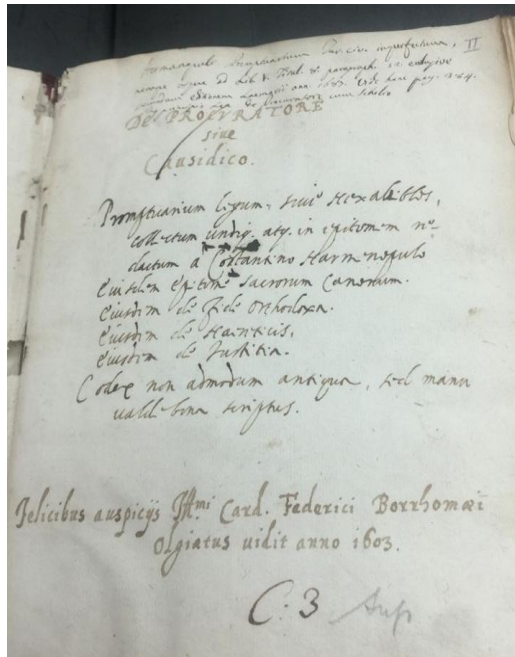 II
De PROCURATORE
siue
Causidico.
Promptuarium legum, siue Hexabiblos,
collectum undiq. atq. in epitomen re-
dactum a Costantino Harmenopulo
Eiusdem epitome sacrorum Canonum.
Eiusdem de Fide Orthodoxa.
Eiusdem de Haereticis.
Eiusdem de Iustitia.
Codex non admodum antiquus, sed manu
ualde bona scriptus.
Felicibus auspicijs Illmi Card. Federici Borrhomaei
Olgiatus uidit anno 1603.
C. 3 Sup